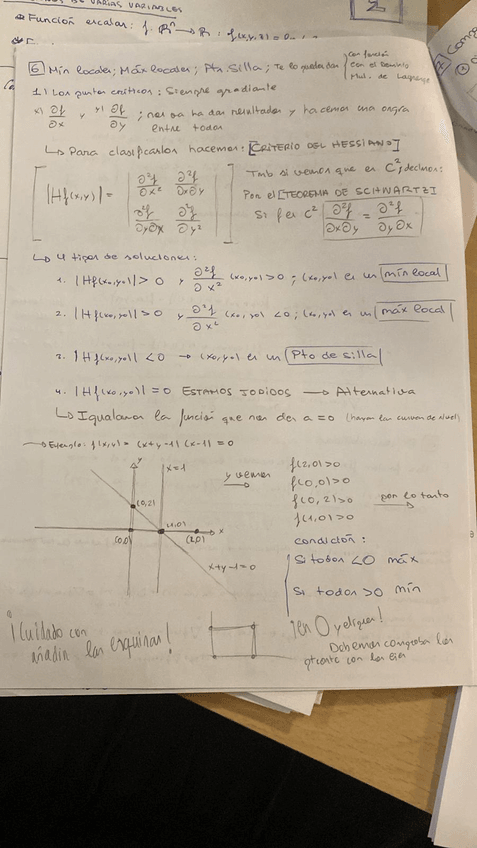 DE VARIAS VARIABLES
Función escalar: f: ℝⁿ → ℝ : f(x,y,z) =
⑥ Mín locales; Máx locales; Pto Silla; Te lo pueden dar
con función
con el Dominio
Mul. de Lagrange
1.) Los puntos críticos: Siempre gradiante
x) ∂f/∂x y y) ∂f/∂y ; nos da ha dar resultados y hacemos una
entre todos
↳ Para clasificarlos hacemos: [CRITERIO DEL HESSIANO]
|Hf(x,y)| = | ∂²f/∂x² ∂²f/∂x∂y |
| ∂²f/∂y∂x ∂²f/∂y² |
Tmb si vemos que es C², decimos:
Por el [TEOREMA DE SCHWARTZ]
Si f es C² ∂²f/∂x∂y = ∂²f/∂y∂x
↳ 4 tipos de soluciones:
1. |Hf(x₀,y₀)| > 0 y ∂²f/∂x² (x₀,y₀) > 0 ; (x₀,y₀) es un mín local
2. |Hf(x₀,y₀)| > 0 y ∂²f/∂x² (x₀,y₀) < 0 ; (x₀,y₀) es un máx local
3. |Hf(x₀,y₀)| < 0 → (x₀,y₀) es un Pto de silla
4. |Hf(x₀,y₀)| = 0 ESTAMOS JODIDOS → Alternativa
↳ Igualamos la función que nos den a = 0 (hayan las curvas de nivel)
→ Ejemplo: f(x,y) = (x+y-1)(x-1) = 0
y
x=1
(0,2)
(1,0)
x
(0,0)
(2,0)
x+y-1=0
y vemos →
f(2,0)>0
f(0,0)>0
f(0,2)>0
f(1,0)>0
por lo tanto →
condición:
Si todos <0 máx
Si todos >0 mín
¡en 0 y eliques!
Debemos comprobar los
con los
¡Cuidado con
añadir las esquinas!